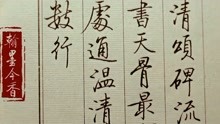 清頌碑流
書天骨最
處通温清
数行
翰墨今香